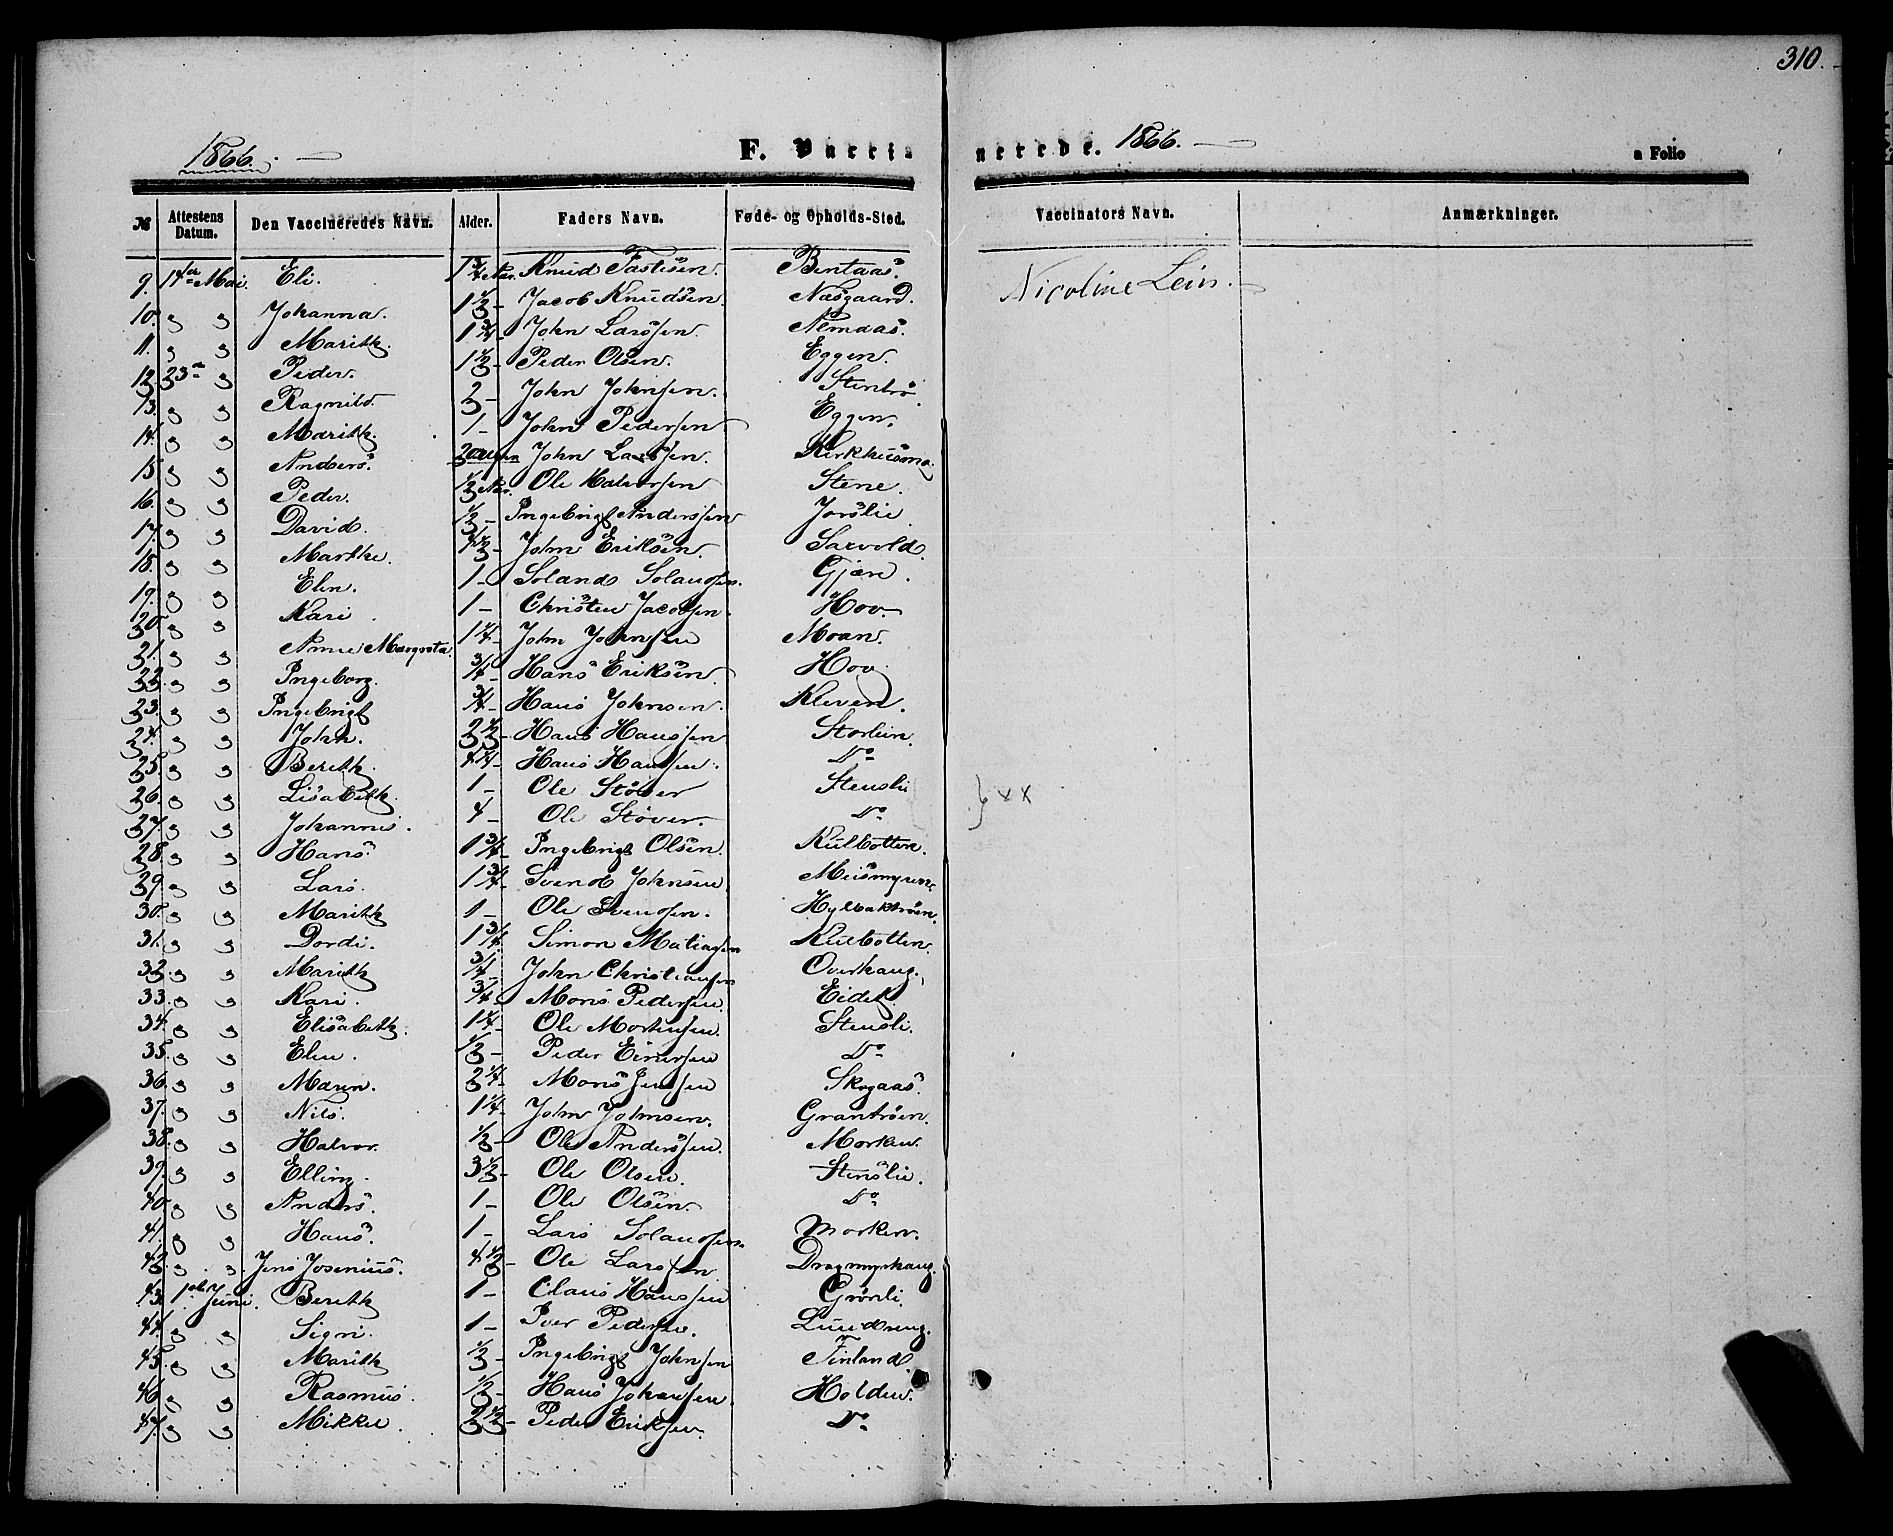 310.
1866.
F. Vacci
nerede. 1866.
a Folio
№ Attestens Datum. Den Vaccineredes Navn. Alder. Faders Navn. Føde- og Opholds-Sted. Vaccinators Navn. Anmærkninger.
9. 14de Mai. Eli. 1 3/4 Aar. Knud Bentaas. Nicoline Lein.
10. " " Johanna. 1 1/2 - Jacob Knudsen. Næsgaard.
11. " " Marith. 1 3/4 John Larssen. Nemaas.
12. 23de " Peder. 1 1/2 - Peder Olsen. Eggen.
13. " " Ragnild. 2 - John Johnsen. Stentrø
14. " " Marith. 1 - John Pedersen Eggen.
15. " " Anders. John Larssen. Kirkhusmo.
16. " " Peder. 1/2 Aar. Ole Halvorsen Stene.
17. " " David. 1/2 - Ingebrigt Anderssen Jorslie
18. " " Marthe. 4 1/2 - John Eriksen. Sarvold.
19. " " Elen. 1 - Soland Gjære.
20. " " Kari. 1 - Christen Jacobsen. Hov.
21. " " Anne Margreta. 1 1/4 - John Johnsen Moan.
22. " " Ingeborg. 3/4 - Hans Eriksen. Hov.
23. " " Ingebrigt 3/4 - Hans Johnsen. Kleven.
24. " " John. 2 1/2 - Hans Hanssen Storlien.
25. " " Berith. 4 1/4 - Hans Hansen. Do
26. " " Lisabeth. 1 - Ole Støver Stensli } x x
27. " " Johannes. 4 - Ole Støver. Do
28. " " Hans. 1 3/4 - Ingebrigt Olsen. Kulbotten.
29. " " Lars. 1 3/4 - Svend Johnsen. Meismyren.
30. " " Marith 1 - Ole Svendsen. Hylbaktrøen.
31. " " Dordi. 1 3/4 - Simon Matiasen Kulbotten.
32. " " Marith 3/4 - John Christiansen Overhaug.
33. " " Kari. 3/4 - Mons Pedersen. Eidet.
34. " " Elisabeth. 1 1/4 - Ole Mortensen. Stensli.
35. " " Elen. 1/2 - Peder Einersen Do
36. " " Maren. 2 1/4 - Mons Jenssen Skogaas.
37. " " Nils. 1 1/4 - John Johnsen. Grantrøen.
38. " " Halvor. 1/2 - Ole Anderssen. Morken.
39. " " Elling. 3 1/2 - Ole Olsen. Stenslie.
40. " " Anders. 1 - Ole Olsen. Do
41. " " Hans. 1 - Lars Morken.
42. " " Jens Josenius. 4 1/2 - Ole Larssen Dragmyrhaug.
43. 1ste Juni. Berith 1 - Claus Hanssen Grønli.
44. " " Sigri. 1 - Iver Pedersen. Lundreng.
45. " " Marith 1/2 - Ingebrigt Johnsen Finland.
46. " " Rasmus. 1/2 - Hans Johansen Holden.
47. " " Mikkel. 2 1/2 - Peder Eriksen. Do